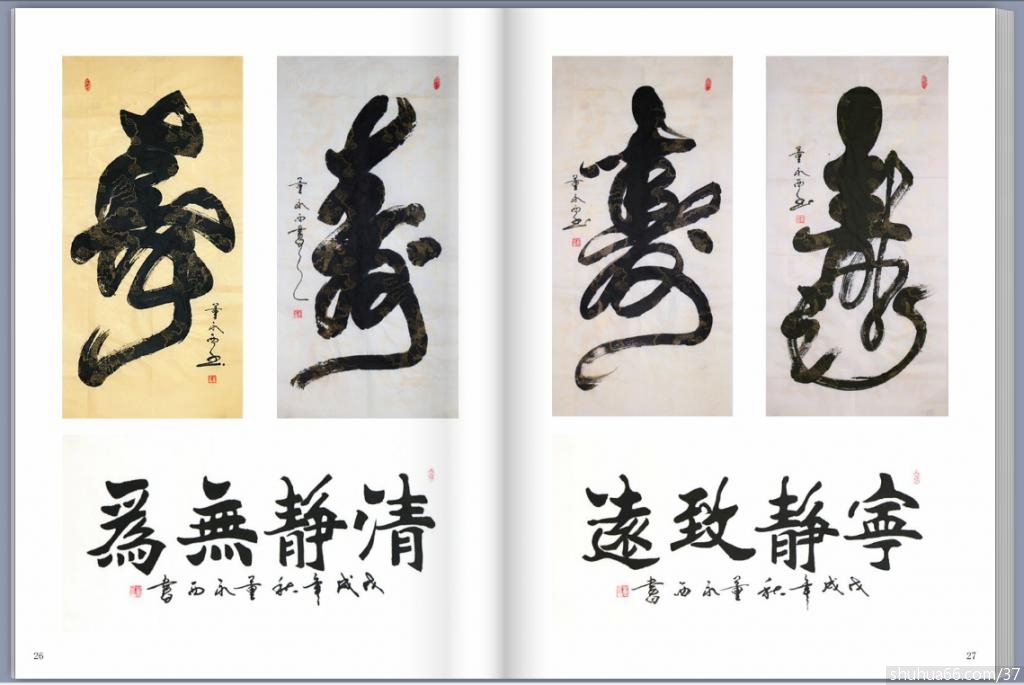 壽
董永西書
壽
董永西書
壽
董永西書
壽
董永西書
清靜無爲
戊戌年秋董永西書
寧靜致遠
戊戌年秋董永西書
26
27
shuhua66.com/37